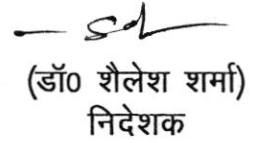 (डॉ0 शैलेश शर्मा)
निदेशक